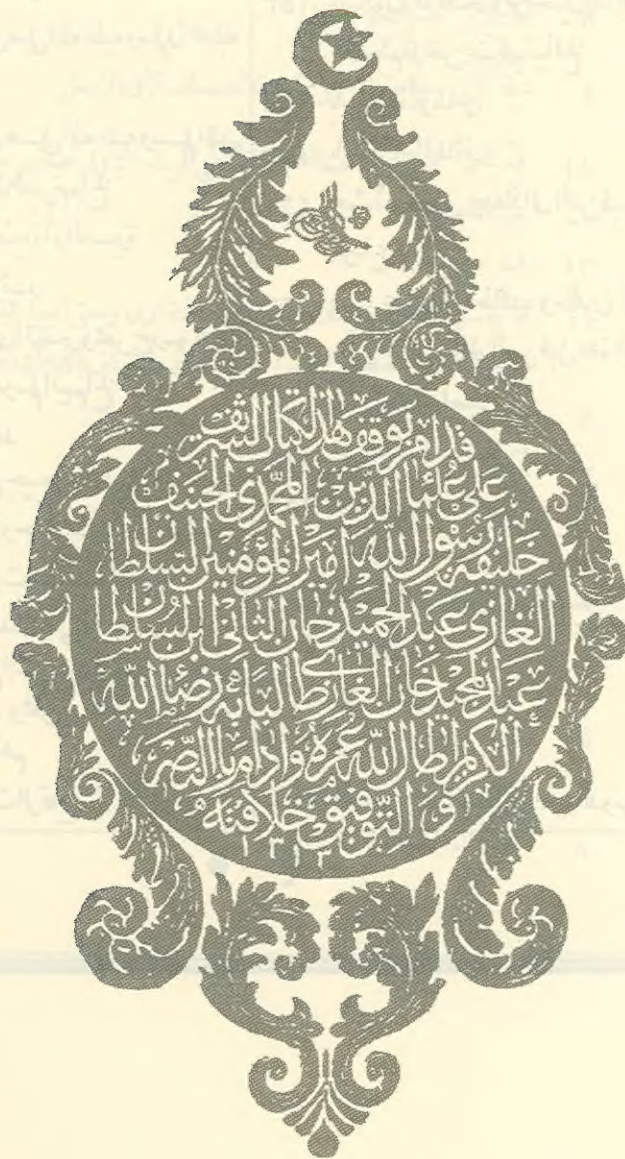 قد امر بوقف هذا الكتاب الشريف
على علماء الدين المحمدى الحنفى
خليفة رسول الله امير المؤمنين السلطان
الغازى عبد الحميد خان الثانى ابن السلطان
عبد المجيد خان الغازى طالبا به رضاء الله
الكريم اطال الله عمره وادام بالنصر
و التوفيق خلافته
١٣١٣